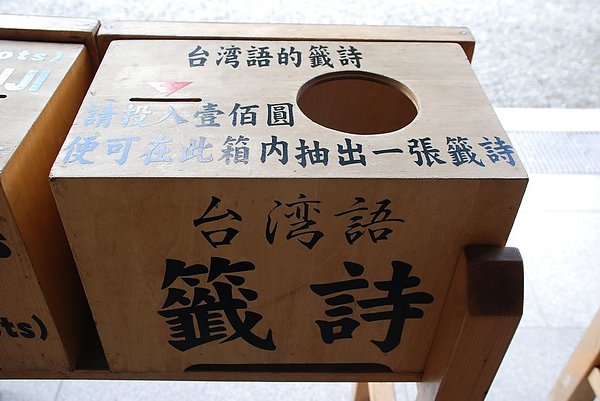 台湾語的籤詩
請投入壹佰圓
便可在此箱内抽出一張籤詩
台湾語
籤詩
ots)
JI
ts)